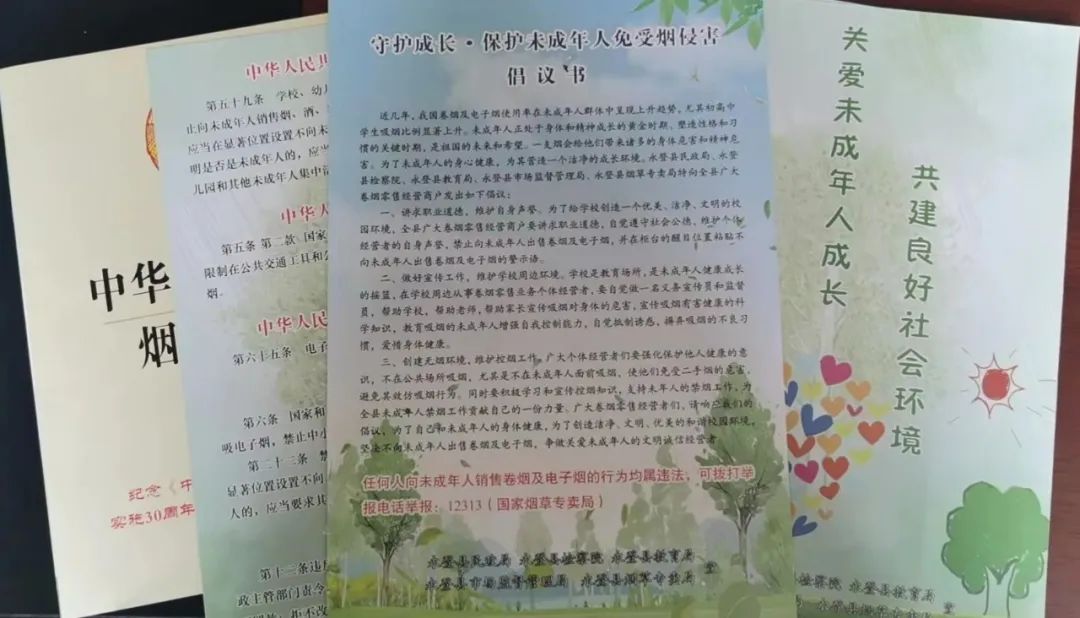 中华
烟
纪念《中
实施30周年
中华人民共
第五十九条 学校、幼儿
止向未成年人销售烟、酒、
应当在显著位置设置不向未
明是否是未成年人的，应当
儿园和其他未成年人集中活
中华人
第五条 第二款 国家
限制在公共交通工具和公
烟。
中华人民
第六十五条 电子
第六条 国家和
吸电子烟，禁止中小
第二十二条 禁
显著位置设置不向
人的，应当要求其
第十二条违
政主管部门责令
守护成长·保护未成年人免受烟侵害
倡议书
近几年，我国卷烟及电子烟使用率在未成年人群体中呈现上升趋势，尤其初高中
学生吸烟比例显著上升。未成年人正处于身体和精神成长的黄金时期、塑造性格和习
惯的关键时期，是祖国的未来和希望。一支烟会给他们带来诸多的身体危害和精神危
害。为了未成年人的身心健康，为其营造一个洁净的成长环境。永登县民政局、永登
县检察院、永登县教育局、永登县市场监督管理局、永登县烟草专卖局特向全县广大
卷烟零售经营商户发出如下倡议：
一、讲求职业道德，维护自身声誉。为了给学校创造一个优美、洁净、文明的校
园环境，全县广大卷烟零售经营商户要讲求职业道德，自觉遵守社会公德，维护个体
经营者的自身声誉，禁止向未成年人出售卷烟及电子烟，并在柜台的醒目位置粘贴不
向未成年人出售卷烟及电子烟的警示语。
二、做好宣传工作，维护学校周边环境。学校是教育场所，是未成年人健康成长
的摇篮，在学校周边从事卷烟零售业务个体经营者，要自觉做一名义务宣传员和监督
员，帮助学校，帮助老师，帮助家长宣传吸烟对身体的危害，宣传吸烟有害健康的科
学知识，教育吸烟的未成年人增强自我控制能力，自觉抵制诱惑，摒弃吸烟的不良习
惯，爱惜身体健康。
三、创建无烟环境，维护控烟工作。广大个体经营者们要强化保护他人健康的意
识，不在公共场所吸烟，尤其是不在未成年人面前吸烟，使他们免受二手烟的危害，
避免其效仿吸烟行为。同时要积极学习和宣传控烟知识，支持未年人的禁烟工作，为
全县未成年人禁烟工作贡献自己的一份力量。广大卷烟零售经营者们，请响应我们的
倡议，为了自己和未成年人的身体健康，为了创造洁净、文明、优美的和谐校园环境，
坚决不向未成年人出售卷烟及电子烟，争做关爱未成年人的文明诚信经营者
任何人向未成年人销售卷烟及电子烟的行为均属违法，可拨打举
报电话举报：12313（国家烟草专卖局）
永登县民政局 永登县检察院 永登县教育局
永登县市场监督管理局 永登县烟草专卖局 宣
关爱未成年人成长
共建良好社会环境
登县检察院 永登县教育局
宣